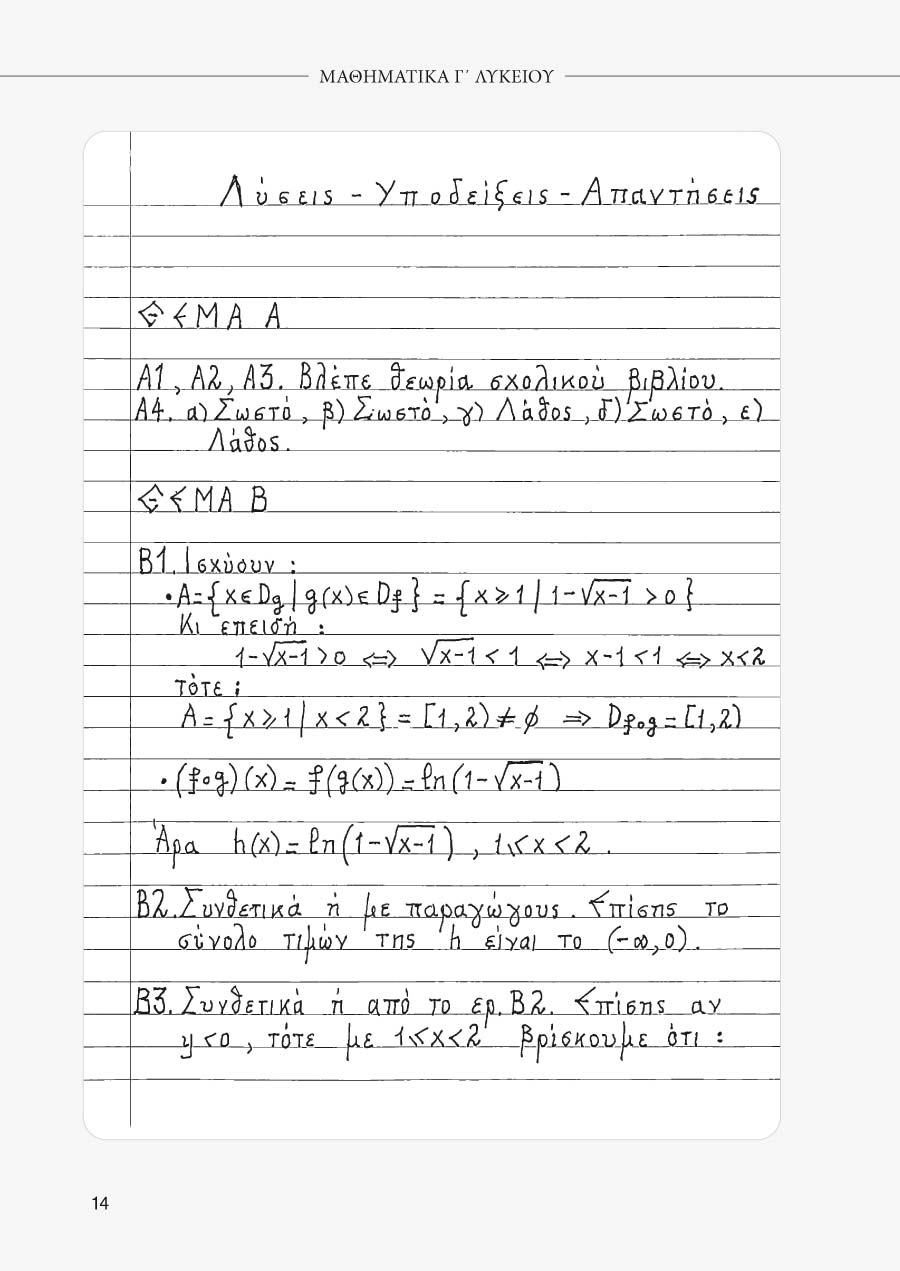 ΜΑΘΗΜΑΤΙΚΑ Γ΄ ΛΥΚΕΙΟΥ
Λύσεις - Υποδείξεις - Απαντήσεις
ΘΕΜΑ Α
Α1, Α2, Α3. Βλέπε θεωρία σχολικού βιβλίου.
Α4. α) Σωστό, β) Σωστό, γ) Λάθος, δ) Σωστό, ε)
Λάθος.
ΘΕΜΑ Β
Β1. Ισχύουν :
• A={x∈Dg | g(x)∈Df} = {x⩾1 | 1-√(x-1) > 0}
Κι επειδή :
1-√(x-1) > 0 ⇔ √(x-1) < 1 ⇔ x-1<1 ⇔ x<2
τότε :
A = {x⩾1 | x<2} = [1,2) ≠ ∅ ⇒ Df∘g = [1,2)
• (f∘g)(x) = f(g(x)) = ln(1-√(x-1))
Άρα h(x) = ln(1-√(x-1)), 1⩽x<2.
Β2. Συνθετικά ή με παραγώγους. Επίσης το
σύνολο τιμών της h είναι το (-∞,0).
Β3. Συνθετικά ή από το ερ. Β2. Επίσης αν
y<0, τότε με 1⩽x<2 βρίσκουμε ότι :
14